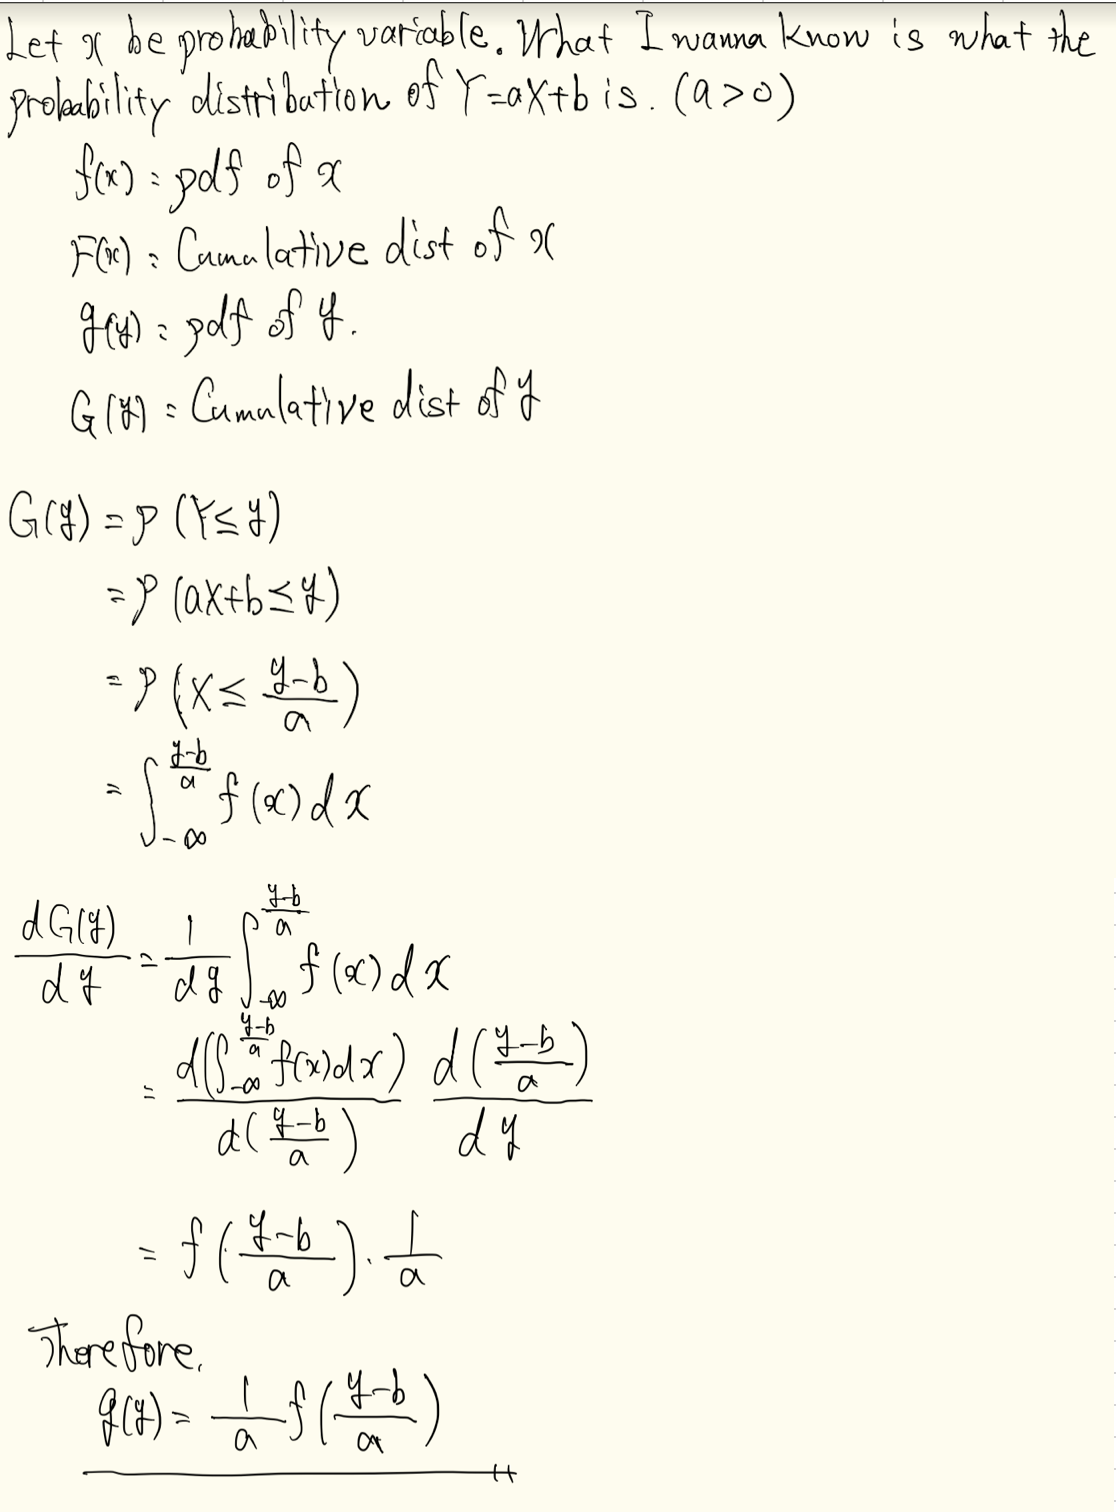 Let x be probability variable. What I wanna know is what the
probability distribution of Y=aX+b is. (a>0)
f(x) : pdf of x
F(x) : Cumulative dist of x
g(y) : pdf of y.
G(y) : Cumulative dist of y
G(y) = P (Y≤y)
= P (aX+b≤y)
= P (X≤ \frac{y-b}{a})
= ∫_{-∞}^{\frac{y-b}{a}} f(x)dx
\frac{dG(y)}{dy} = \frac{1}{dy} ∫_{-∞}^{\frac{y-b}{a}} f(x)dx
= \frac{d(∫_{-∞}^{\frac{y-b}{a}} f(x)dx)}{d(\frac{y-b}{a})} \frac{d(\frac{y-b}{a})}{dy}
= f(\frac{y-b}{a}) · \frac{1}{a}
Therefore,
g(y) = \frac{1}{a} f(\frac{y-b}{a})